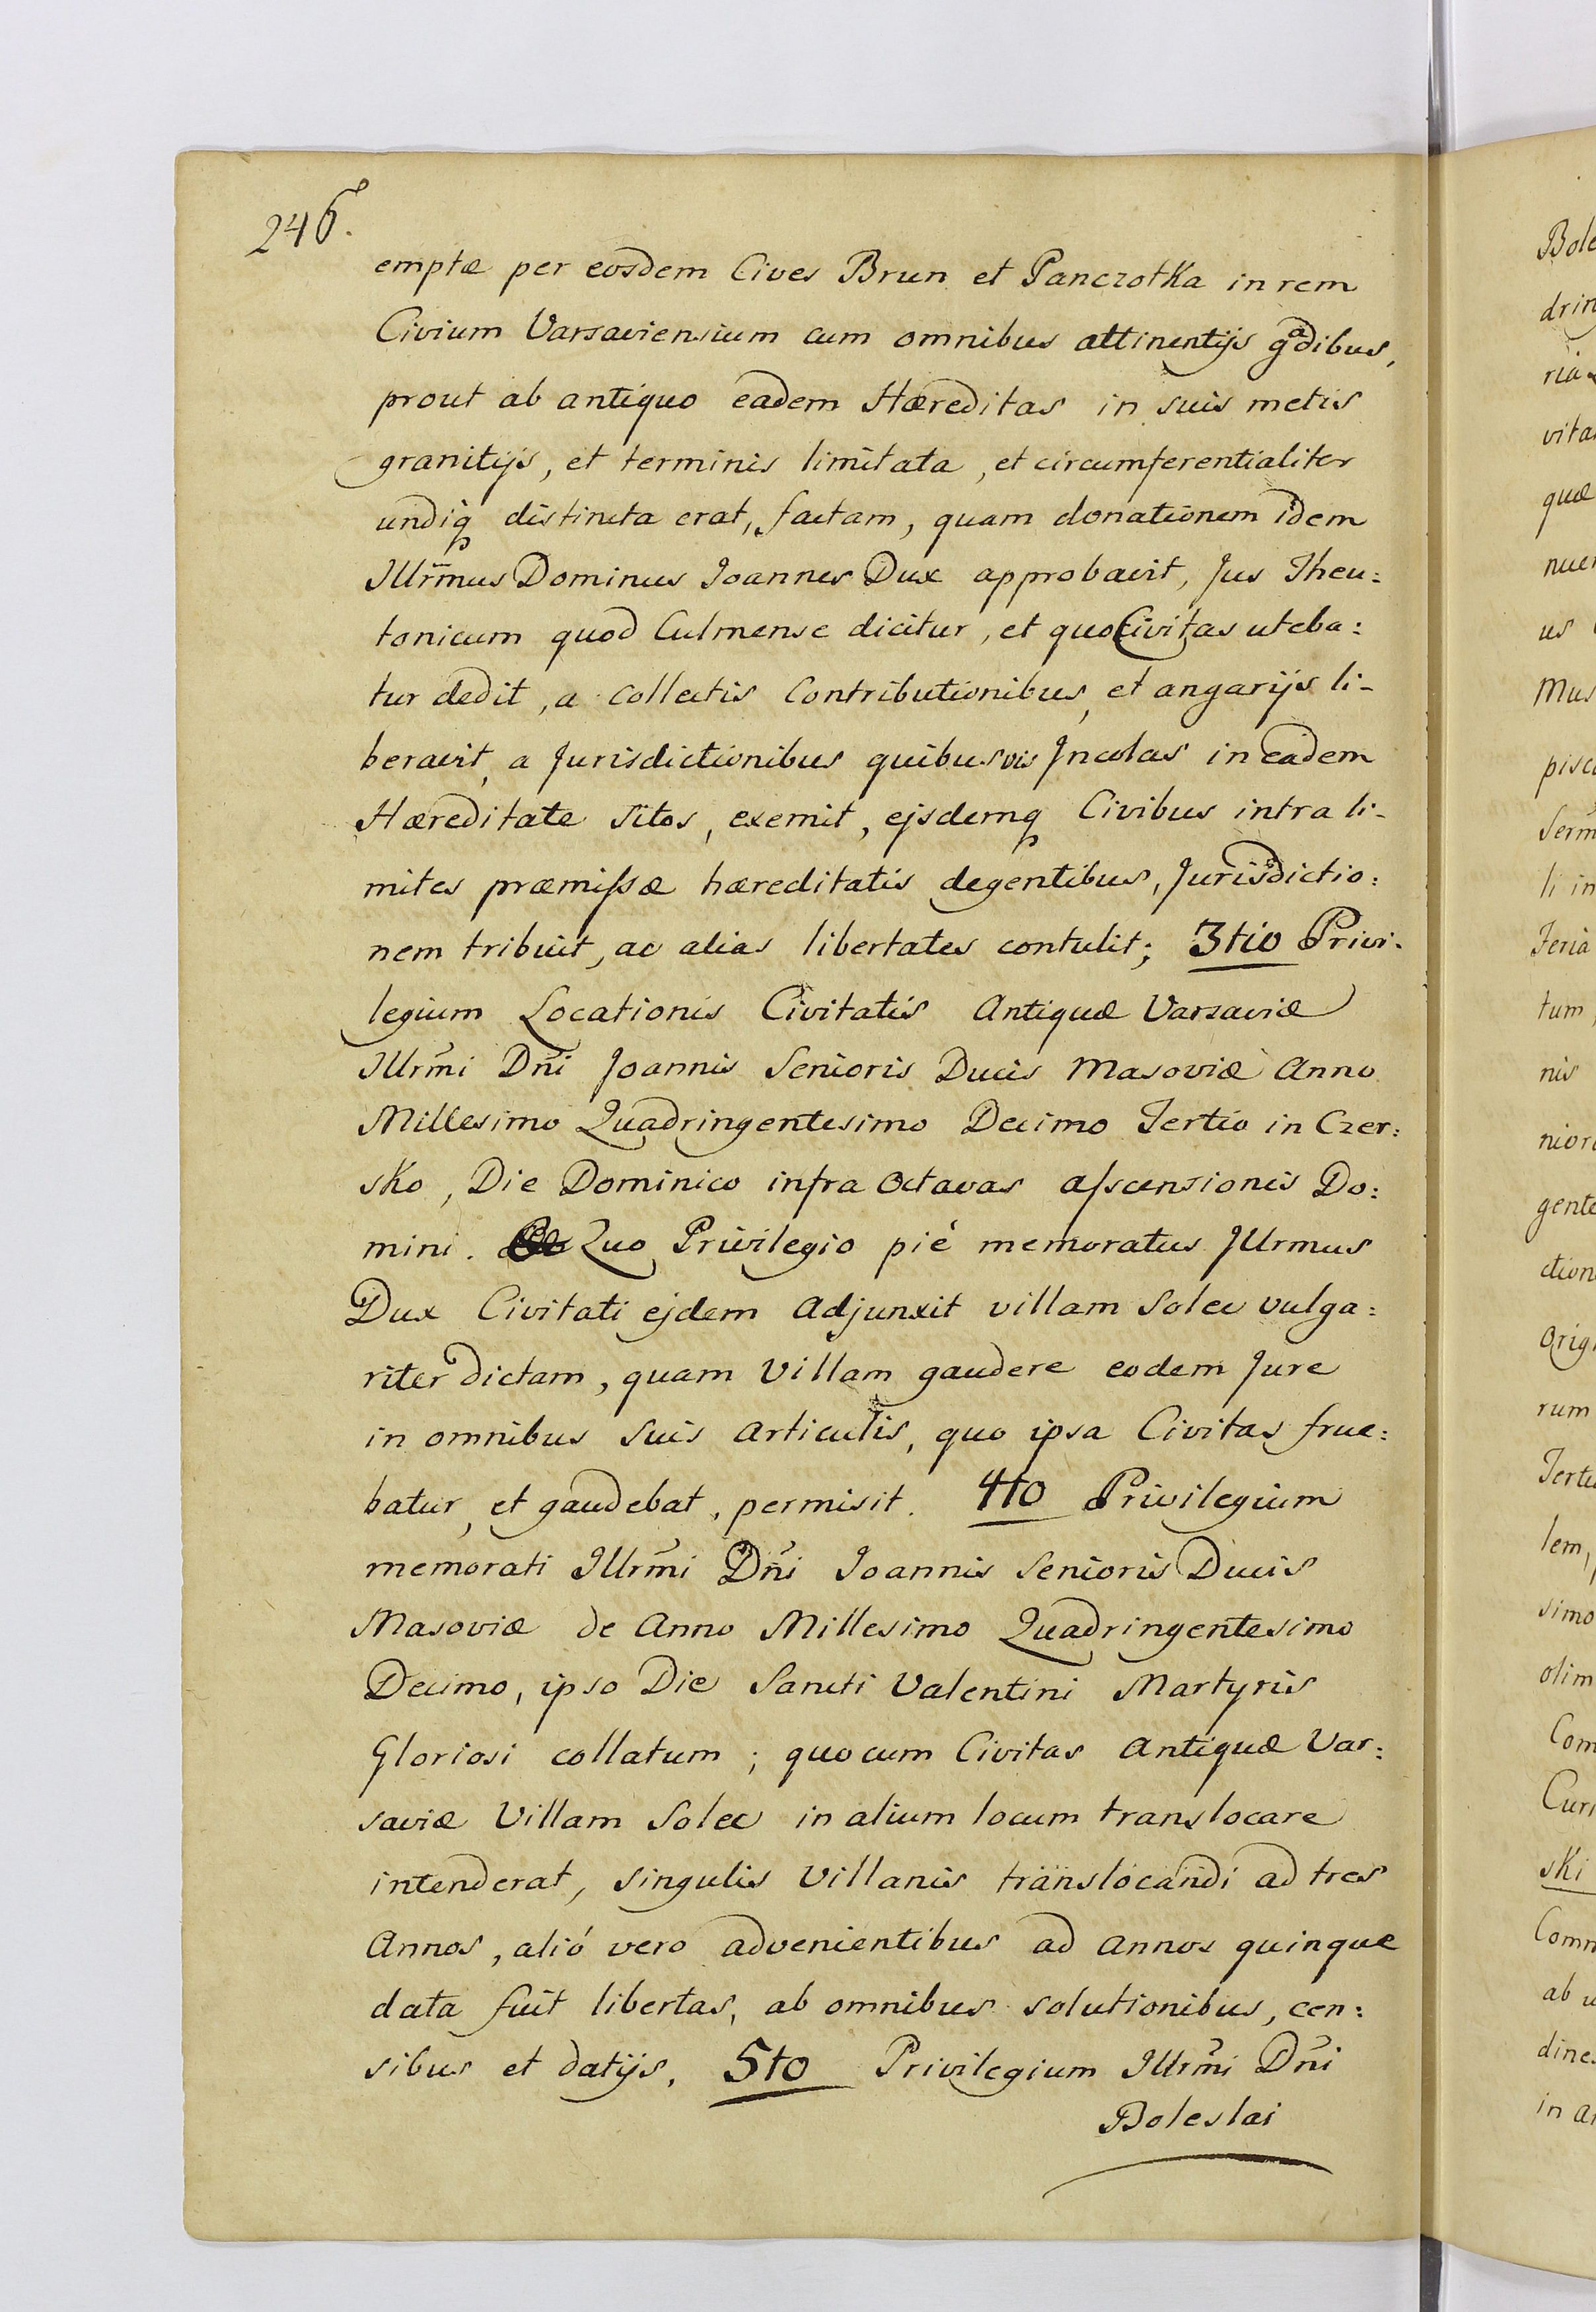 246.
emptæ per eosdem Cives Brun et Panczotka in rem
Civium Varsaviensium cum omnibus attinentijs gādibus,
prout ab antiquo eadem Hæreditas in suis metis
granitijs, et terminis limitata, et circumferentialiter
undiq distincta erat, factam, quam donationem idem
Illrm̄us Dominus Joannes Dux approbavit, Jus Theu:
tonicum quod Culmense dicitur, et quo Civitas uteba:
tur dedit, a collectis Contributionibus, et angarijs li-
beravit, a Jurisdictionibus quibusvis Jncolas in eadem
Hæreditate sitos, exemit, ejsdemq Civibus intra li-
mites præmiſsæ hæreditatis degentibus, Jurisdictio:
nem tribuit, ac alias libertates contulit; 3tio Privi-
legium Locationis Civitatis Antiquæ Varsaviæ
Illrm̄i Dn̄i Joannis Senioris Ducis Masoviæ Anno
Millesimo Quadringentesimo Decimo Tertio in Czer:
sko, Die Dominico infra Octavas aſscensionis Do:
mini. Quo Privilegio pié memoratus Jllrmus
Dux Civitati ejdem Adjunxit villam Solec vulga:
riter dictam, quam Villam gaudere eodem Jure
in omnibus suis articulis, quo ipsa Civitas frue:
batur, et gaudebat, permisit. 4to Privilegium
memorati Illrm̄i Dn̄i Joannis Senioris Ducis
Masoviæ de Anno Millesimo Quadringentesimo
Decimo, ipso Die Sancti Valentini Martyris
Gloriosi collatum; quo cum Civitas Antiquæ Var:
saviæ Villam Solec in alium locum translocare
intenderat, singulis Villanis translocandi ad tres
Annos, alió vero advenientibus ad annos quinque
data fuit libertas, ab omnibus solutionibus, cen:
sibus et datijs. 5to Privilegium Illrm̄i Dn̄i
Boleslai